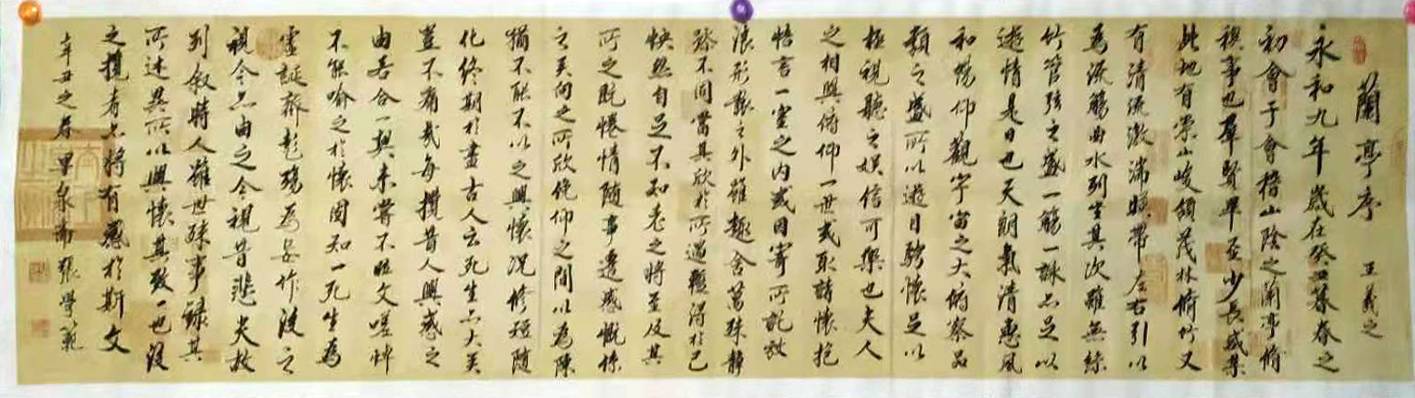 蘭亭序 王羲之
永和九年歲在癸丑暮春之
初會于會稽山陰之蘭亭脩
禊事也羣賢畢至少長咸集
此地有崇山峻領茂林脩竹又
有清流激湍暎帶左右引以
為流觴曲水列坐其次雖無絲
竹管弦之盛一觴一詠亦足以
遊情是日也天朗氣清惠風
和暢仰觀宇宙之大俯察品
類之盛所以遊目騁懷足以
極視聽之娛信可樂也夫人
之相與俯仰一世或取諸懷抱
悟言一室之內或因寄所託放
浪形骸之外雖趣舍萬殊靜
躁不同當其欣於所遇蹔得於己
快然自足不知老之將至及其
所之既惓情隨事遷感慨係
之矣向之所欣俛仰之間以為陳
猶不能不以之興懷況脩短隨
化終期於盡古人云死生亦大矣
豈不痛哉每攬昔人興感之
由若合一契未嘗不臨文嗟悼
不能喻之於懷固知一死生為
虛誕齊彭殤為妄作後之
視今亦由今之視昔悲夫故
列敘時人雖世殊事錄其
所述異所以興懷其致一也後
之攬者亦將有感於斯文
辛丑之春 張學範